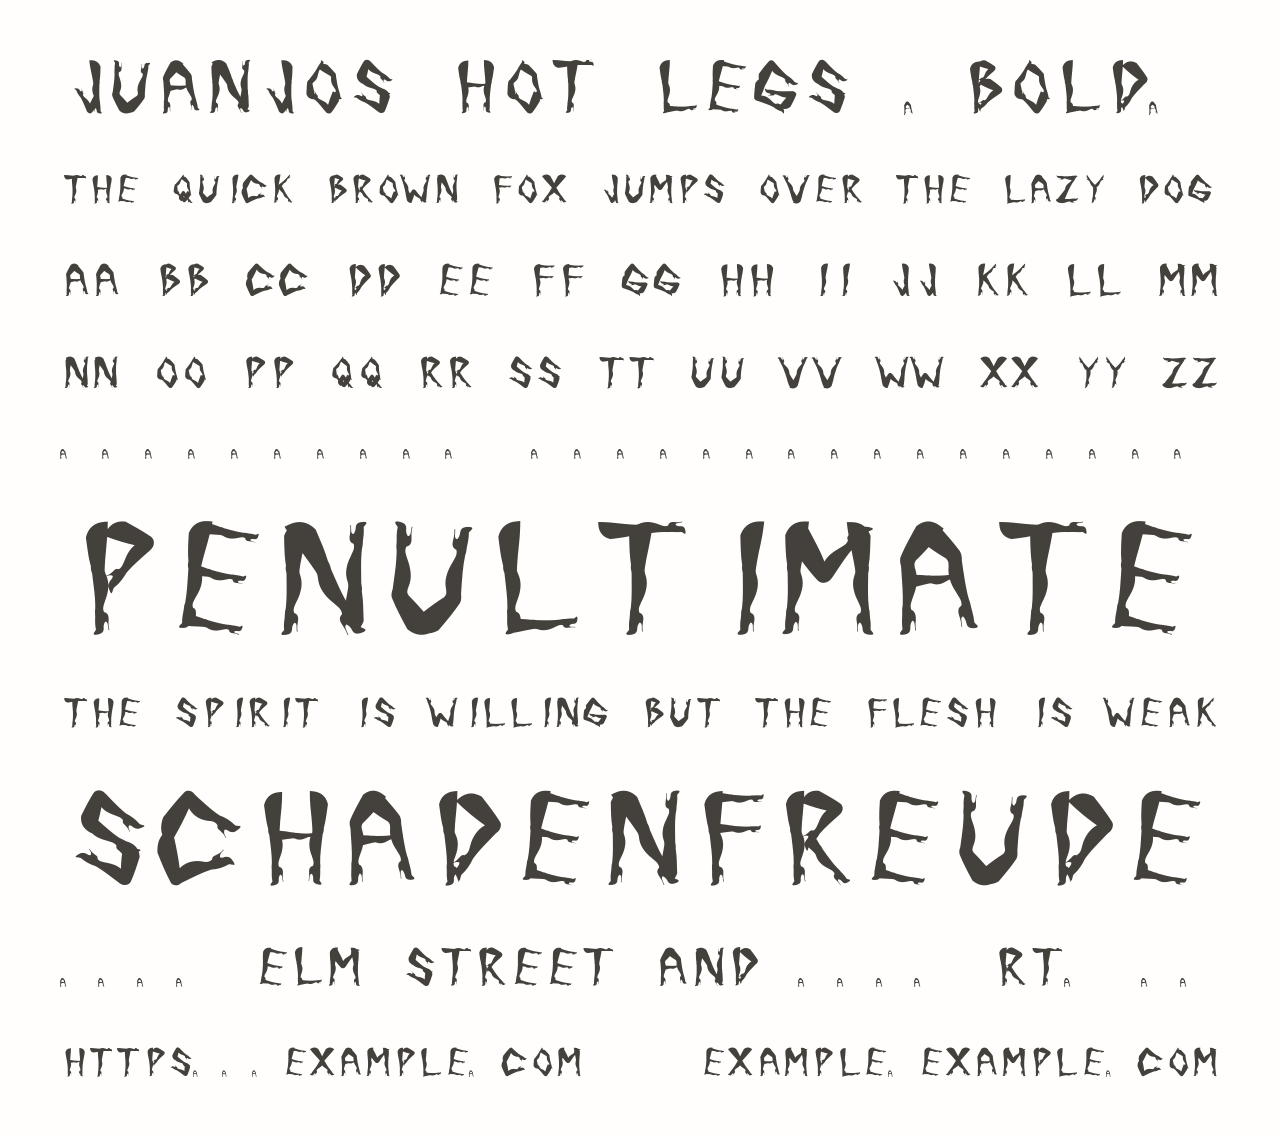 JUANJOS HOT LEGS A BOLD.
THE QUICK BROWN FOX JUMPS OVER THE LAZY DOG
AA BB CC DD EE FF GG HH II JJ KK LL MM
NN OO PP QQ RR SS TT UU VV WW XX YY ZZ
A A A A A A A A A A A A A A A A A A A A A A A A A A
PENULTIMATE
THE SPIRIT IS WILLING BUT THE FLESH IS WEAK
SCHADENFREUDE
A A A A ELM STREET AND A A A A RTA A A
HTTPSA A A EXAMPLEA COM EXAMPLEA EXAMPLEA COM